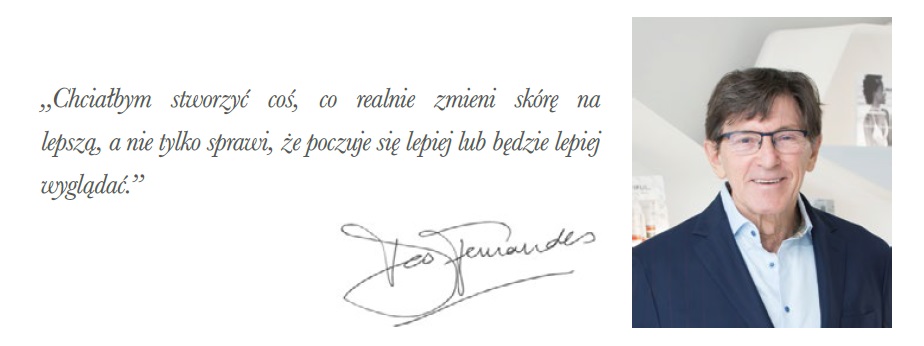 „Chciałbym stworzyć coś, co realnie zmieni skórę na
lepszą, a nie tylko sprawi, że poczuje się lepiej lub będzie lepiej
wyglądać.”
Fernandes